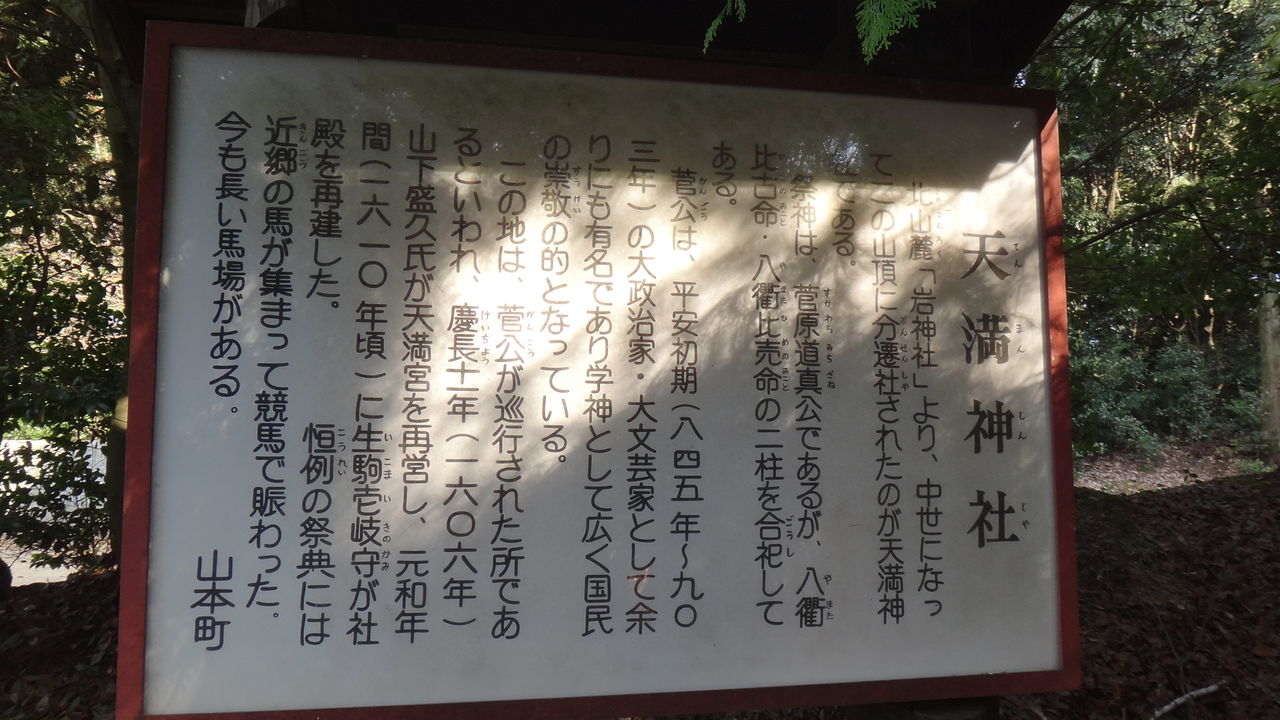 天満神社
北山麓「岩神社」より、中世になっ
てこの山頂に分遷社されたのが天満神
社である。
祭神は、菅原道真公であるが、八衢
比古命・八衢比売命の二柱を合祀して
ある。
菅公は、平安初期(八四五年〜九〇
三年)の大政治家・大文芸家として余
りにも有名であり学神として広く国民
の崇敬の的となっている。
この地は、菅公が巡行された所であ
るといわれ、慶長十一年(一六〇六年)
山下盛久氏が天満宮を再営し、元和年
間(一六一〇年頃)に生駒壱岐守が社
殿を再建した。 恒例の祭典には
近郷の馬が集まって競馬で賑わった。
今も長い馬場がある。
山本町